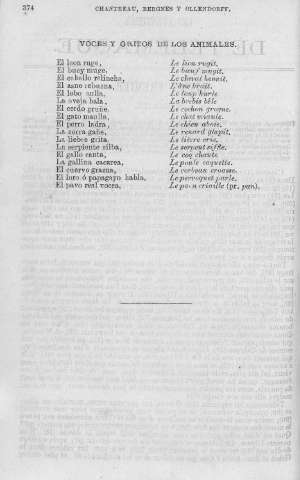 374 CHANTREAU, BERGNES Y OLLENDORFF.
VOCES Y GRITOS DE LOS ANIMALES.
El leon ruge, Le lion rugit.
El buey muge. Le bœuf mugit.
El caballo relincha, Le cheval hennit.
El asno rebuzna, L'âne brait.
El lobo aulla, Le loup hurle.
La oveja bala, La brebis bêle
El cerdo gruñe. Le cochon grogne.
El gato maulla, Le chat miaule.
El perro ladra, Le chien aboie.
La zorra gañe, Le renard glapit.
La liebre grita. Le lièvre crie.
La serpiente silba, Le serpent siffle.
El gallo canta, Le coq chante.
La gallina cacarea, La poule caquette.
El cuervo grazna, Le corbeau croasse.
El loro ó papagayo habla, Le perroquet parle.
El pavo real vocea, Le paon criaille (pr. pan).